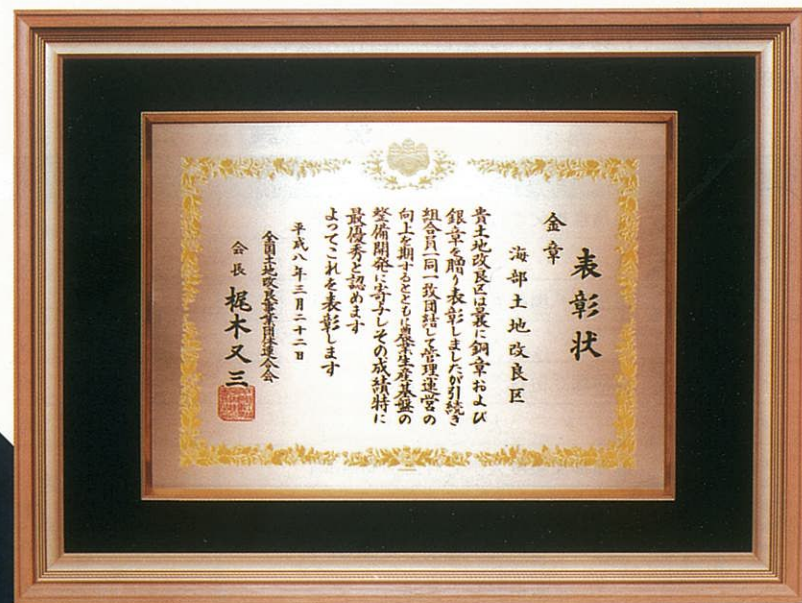 表彰状
金章
海部土地改良区
貴土地改良区は曩に銅章および
銀章を贈り表彰しましたが引続き
組合員一同一致団結して管理運営の
向上を期するとともに農業生産基盤の
整備開発に寄与しその成績特に
最優秀と認めます
よってこれを表彰します
平成八年三月二十二日
全国土地改良事業団体連合会
会長 梶木又三